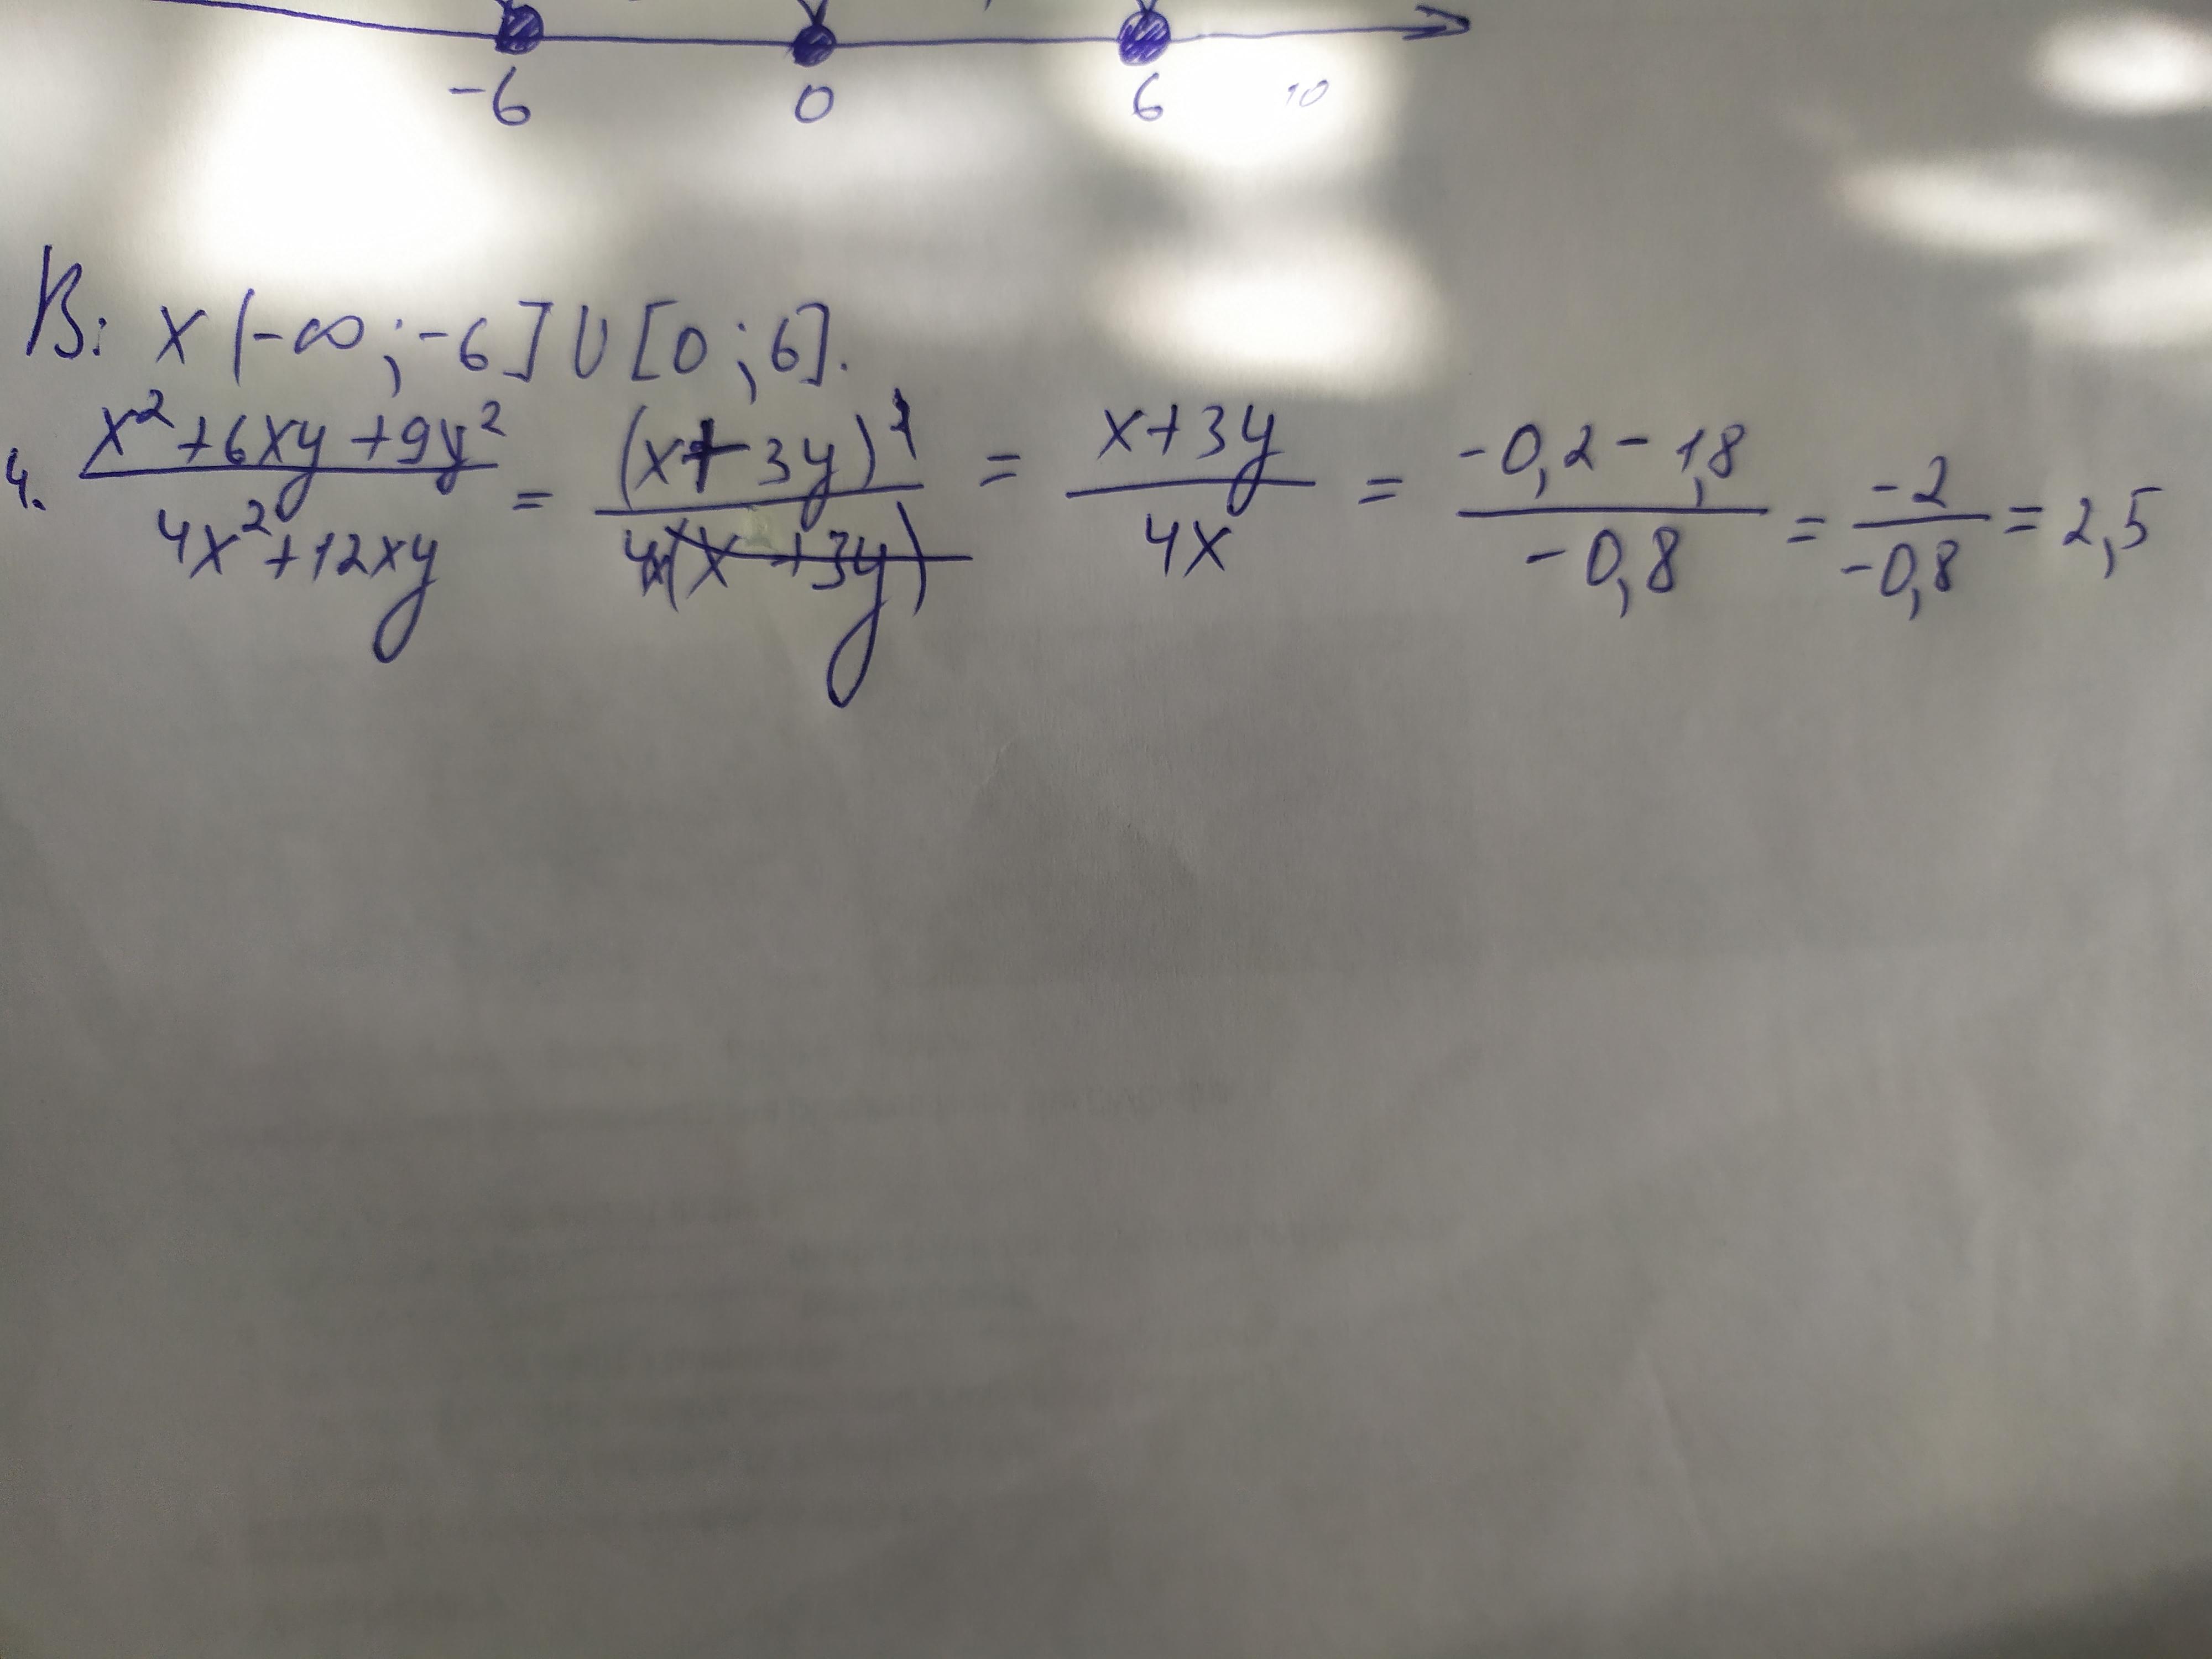 -6 0 6 10
В: x (-∞; -6] U [0; 6].
4. x²+6xy+9y² / 4x²+12xy = (x+3y)² / 4x(x+3y) = x+3y / 4x = -0,2-1,8 / -0,8 = -2 / -0,8 = 2,5